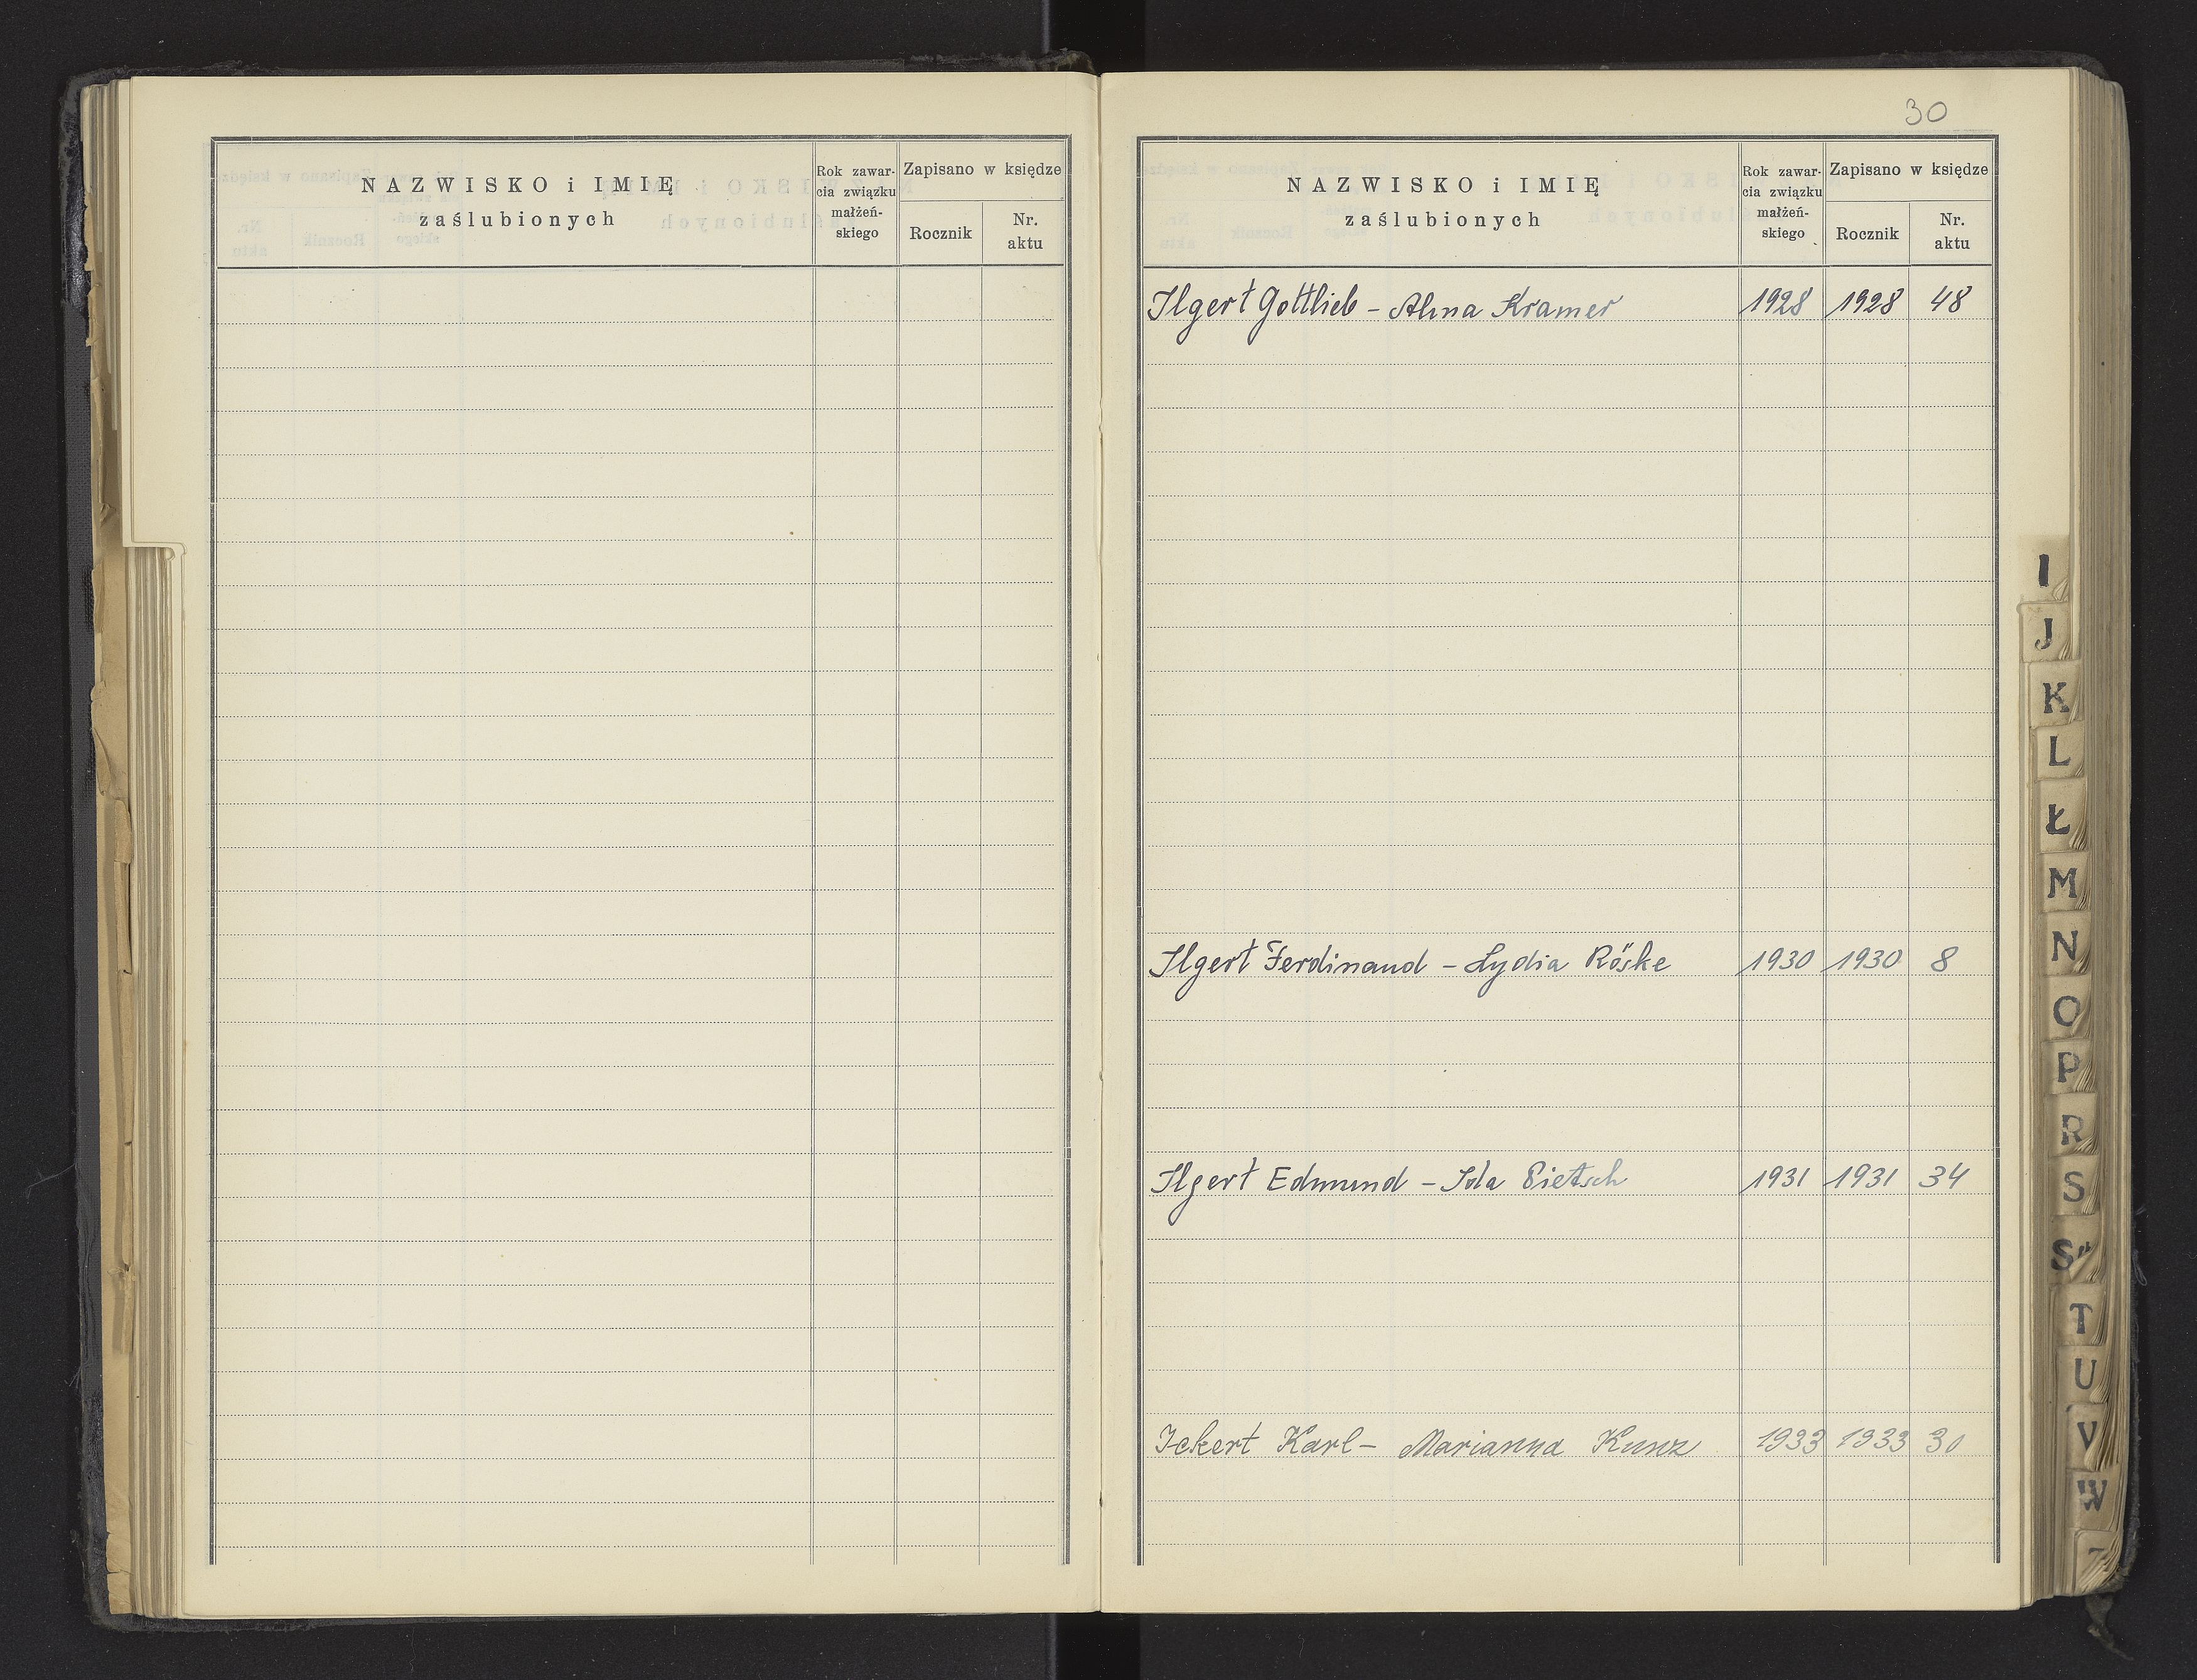 NAZWISKO i IMIĘ
zaślubionych
Rok zawar-
cia związku
małżeń-
skiego
Zapisano w księdze
Rocznik
Nr.
aktu
30
NAZWISKO i IMIĘ
zaślubionych
Rok zawar-
cia związku
małżeń-
skiego
Zapisano w księdze
Rocznik
Nr.
aktu
Ilgert Gottlieb - Alma Kramer 1928 1928 48
Ilgert Ferdinand - Lydia Röske 1930 1930 8
Ilgert Edmund - Ida Pietsch 1931 1931 34
Ickert Karl - Marianna Kunz 1933 1933 30
I
J
K
L
Ł
M
N
O
P
R
S
T
U
V
W